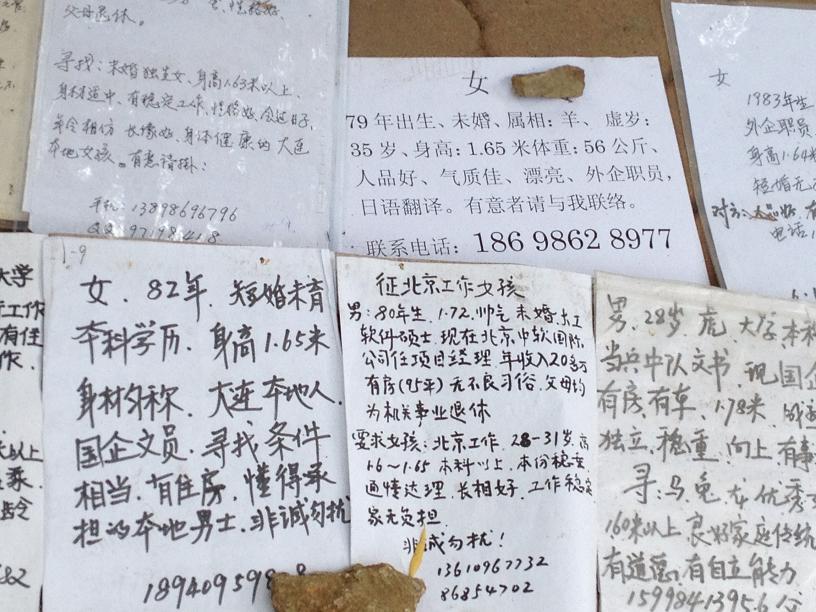 父母退休。
寻找：未婚独生女、身高1.63米以上、
身材适中、有稳定工作、性格好、会过日子、
年令相仿 长像好、身体健康的大连
本地女孩。有意请掛：
手机：13898696796
女
79年出生、未婚、属相：羊、虚岁：
35岁、身高：1.65米体重：56公斤、
人品好、气质佳、漂亮、外企职员，
日语翻译。有意者请与我联络。
联系电话：186 9862 8977
女
1983年生
外企职员
身高1.64米
短婚无
对方：
电话
大学
工作
有住
作.
以上
1-9
女. 82年. 短婚未育
本科学历. 身高1.65米
身材匀称. 大连本地人.
国企文员. 寻找条件
相当. 有住房. 懂得承
担的本地男士. 非诚勿扰
189409598
征北京工作女孩
男：80年生. 1.72. 帅气 未婚. 大工
软件硕士. 现在北京中软国际
公司任项目经理. 年收入20多万
有房(95平) 无不良习俗. 父母均
为机关事业退休
要求女孩：北京工作. 28-31岁. 高
1.6～1.65 本科以上. 本份稳重
通情达理. 长相好. 工作稳定
家无负担.
非诚勿扰！
13610967732
86854702
男. 28岁 虎. 大学本科
当兵中队文书. 现国企
有房有车. 1.78米.
独立. 稳重. 向上. 有事
寻：马 兔 龙 优秀
160米以上 良好家庭传统
有道德. 有自立能力
15998413956